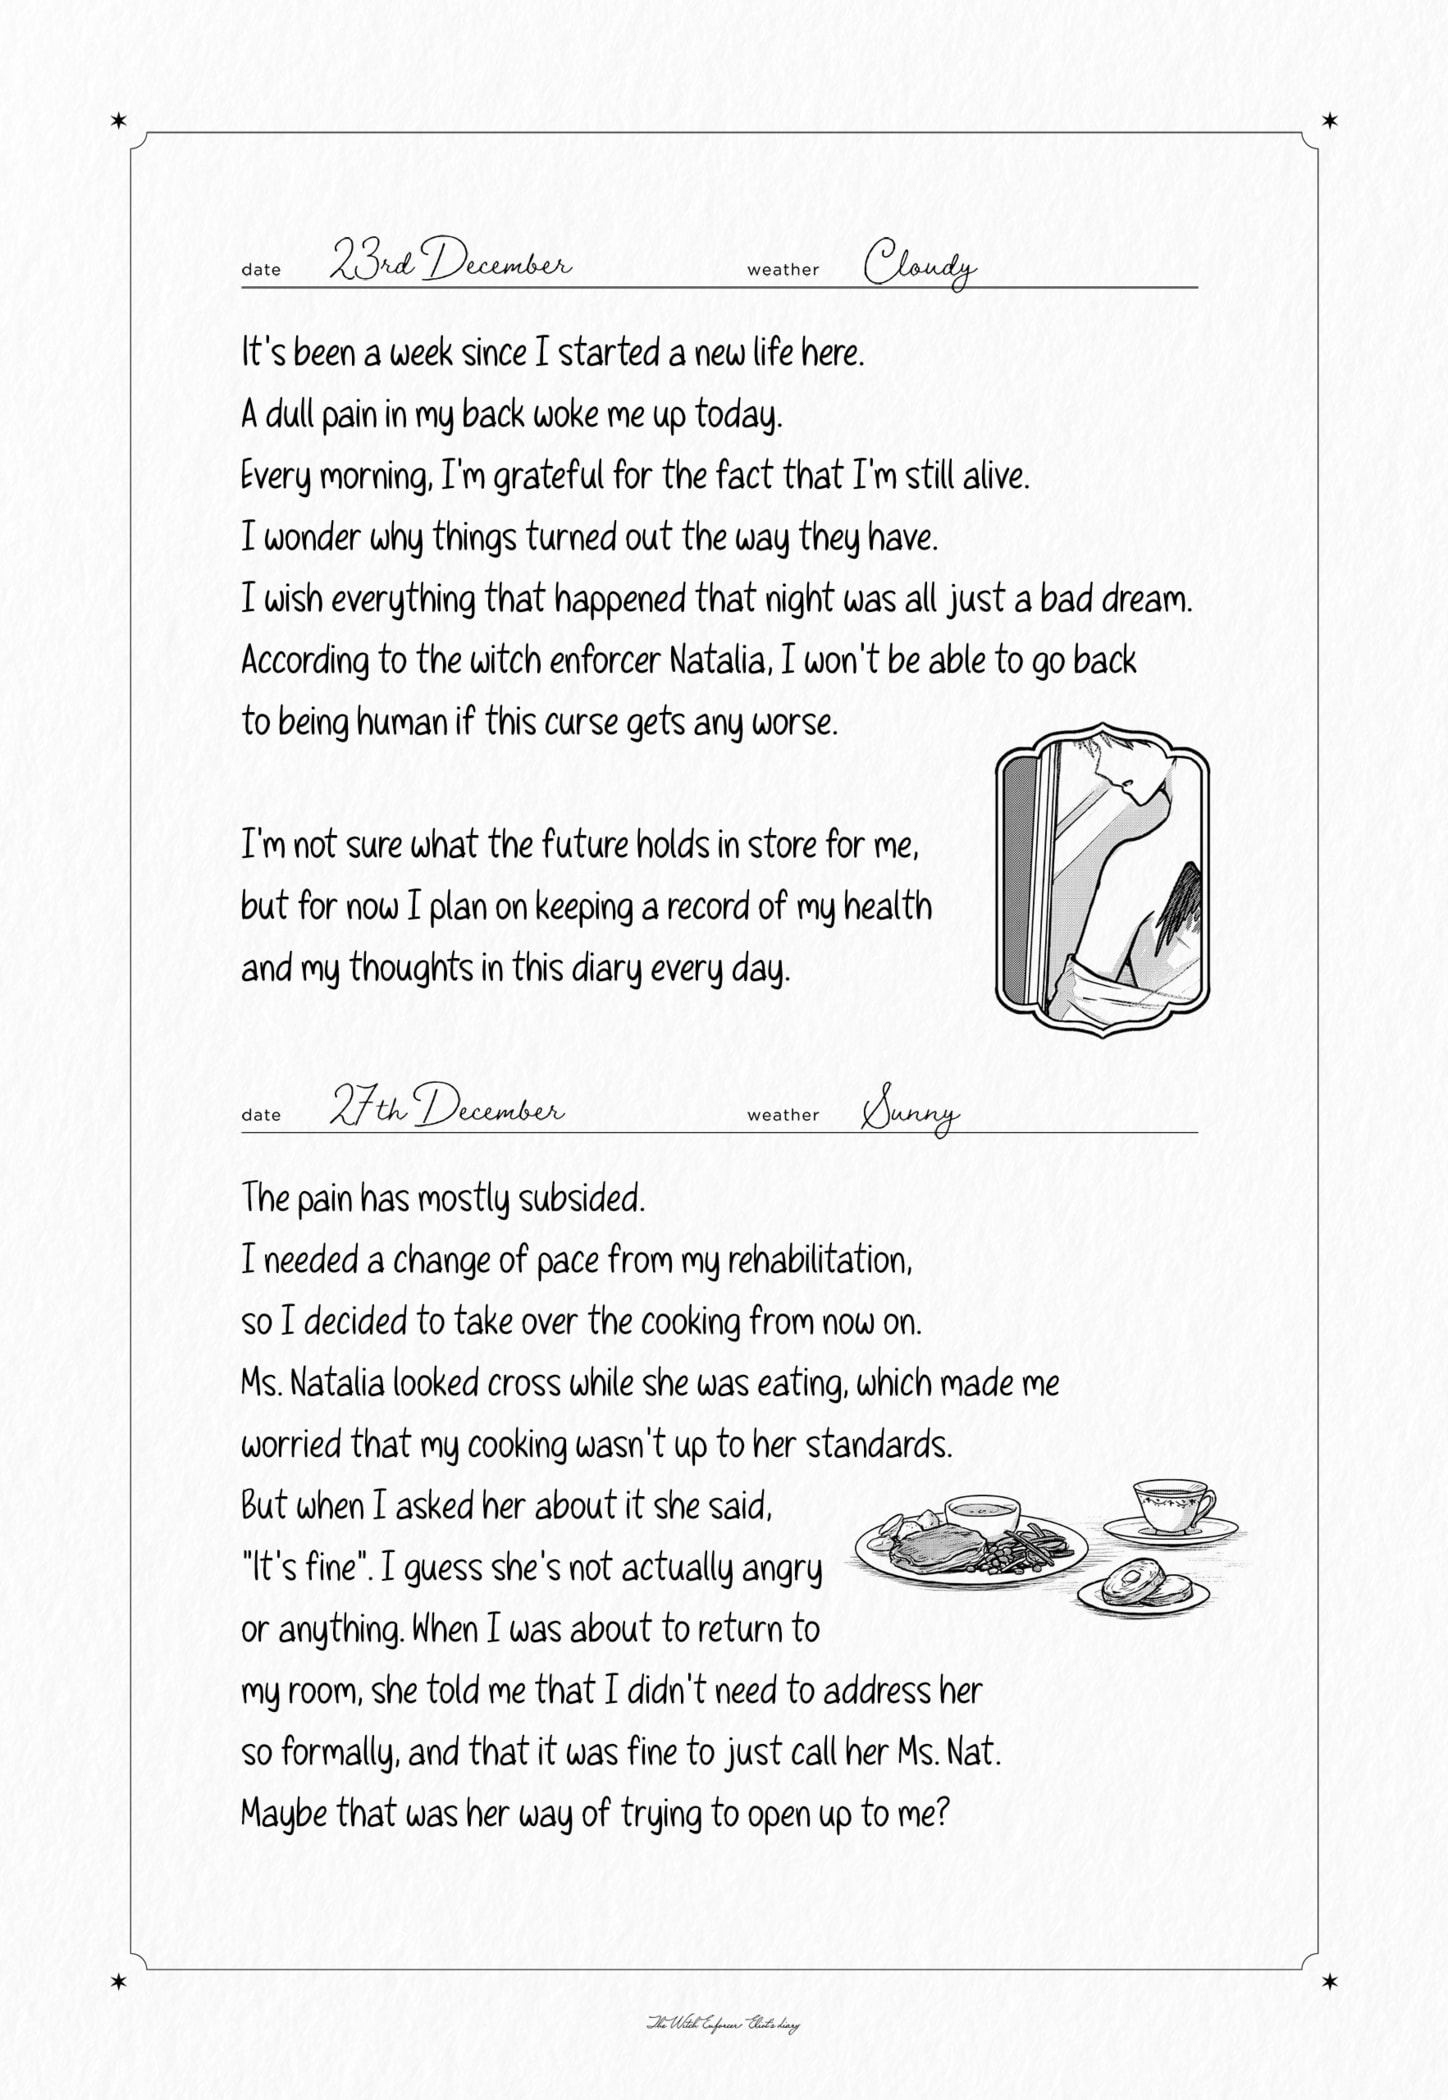 date 23rd December weather Cloudy
It's been a week since I started a new life here.
A dull pain in my back woke me up today.
Every morning, I'm grateful for the fact that I'm still alive.
I wonder why things turned out the way they have.
I wish everything that happened that night was all just a bad dream.
According to the witch enforcer Natalia, I won't be able to go back
to being human if this curse gets any worse.
I'm not sure what the future holds in store for me,
but for now I plan on keeping a record of my health
and my thoughts in this diary every day.
date 27th December weather Sunny
The pain has mostly subsided.
I needed a change of pace from my rehabilitation,
so I decided to take over the cooking from now on.
Ms. Natalia looked cross while she was eating, which made me
worried that my cooking wasn't up to her standards.
But when I asked her about it she said,
"It's fine". I guess she's not actually angry
or anything. When I was about to return to
my room, she told me that I didn't need to address her
so formally, and that it was fine to just call her Ms. Nat.
Maybe that was her way of trying to open up to me?
The Witch Enforcer Eliot's diary